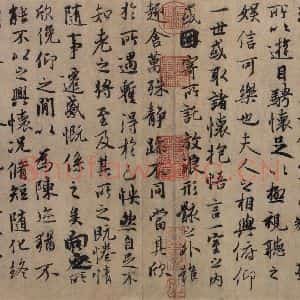 所以遊目騁懷足以極視聽之
娛信可樂也夫人之相與俯仰
一世或取諸懷抱悟言一室之內
或因寄所託放浪形骸之外雖
趣舍萬殊靜躁不同當其欣
於所遇暫得於己怏然自足不
知老之將至及其所之既惓情
隨事遷感慨係之矣向之所
欣俛仰之閒以為陳迹猶不
能不以之興懷況脩短隨化終